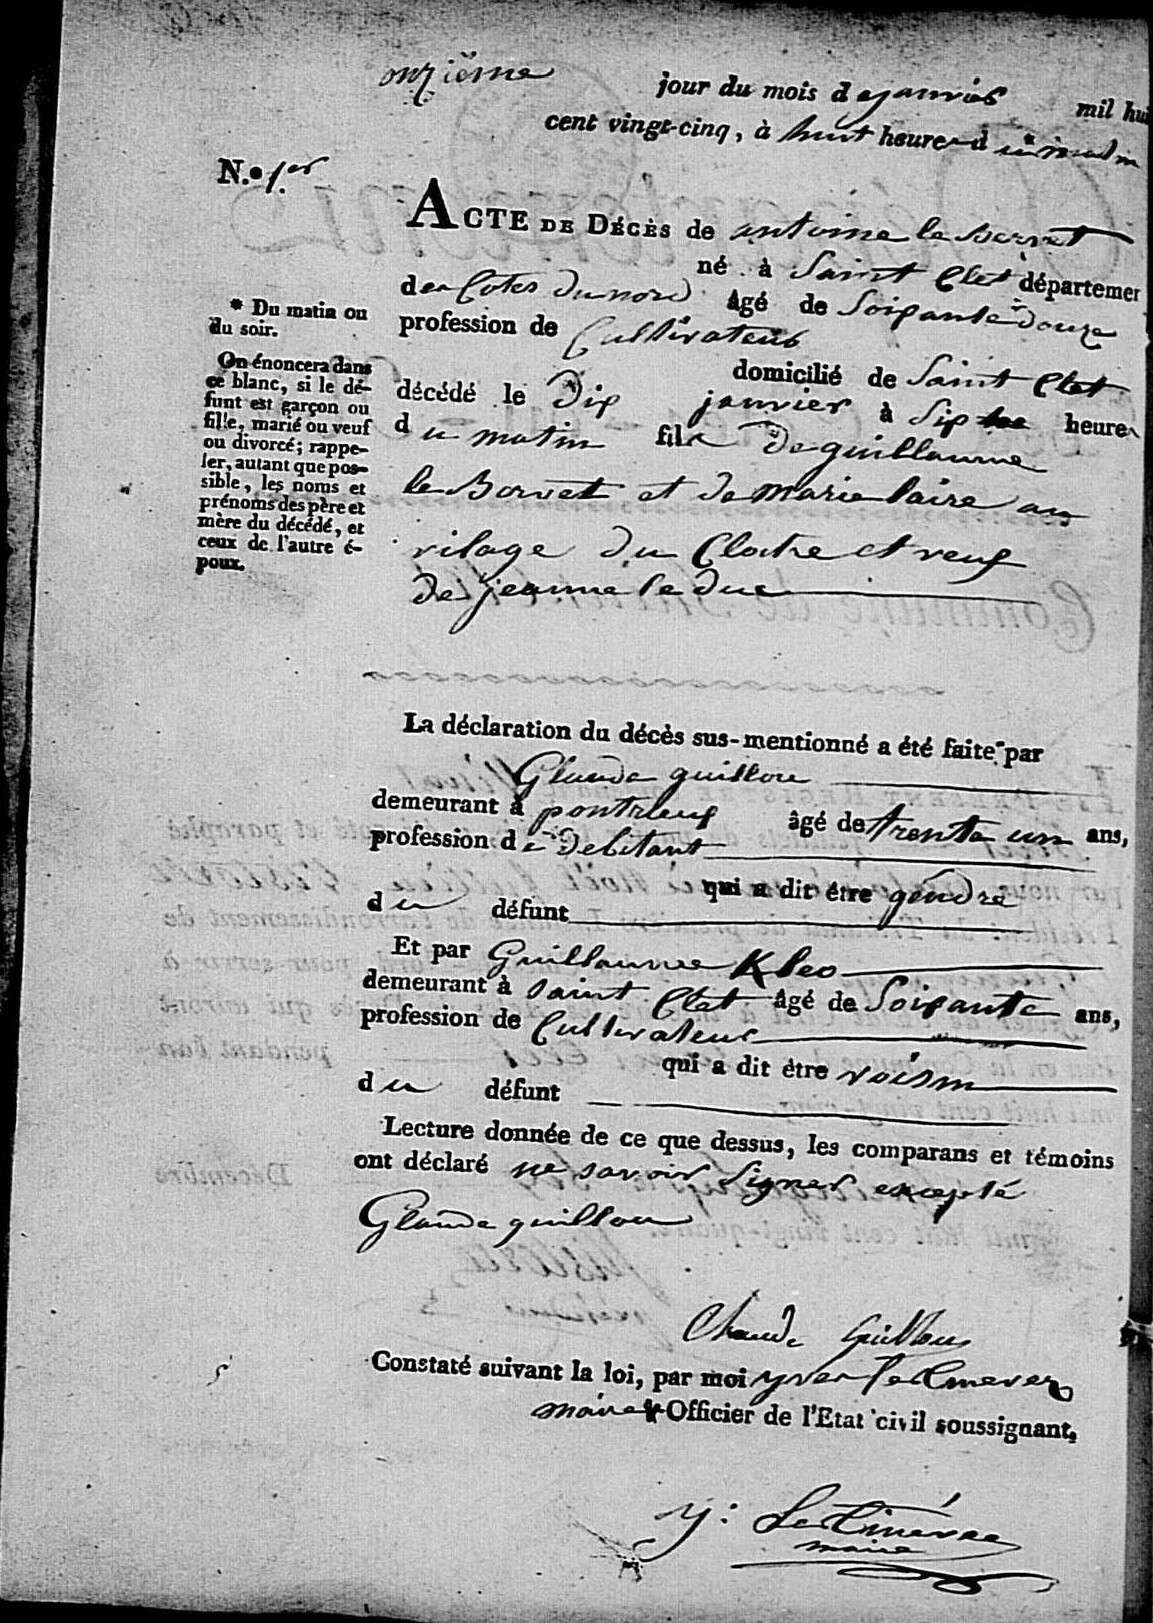 onzième jour du mois de janvier mil hui
cent vingt-cinq, à huit heures d u matin
N.º 1.er
ACTE DE DÉCÈS de antoine le Borvet
né à Saint Clet départemen
des Cotes du nord âgé de Soixante douze
profession de Cultivateur
* Du matin ou
du soir.
On énoncera dans
ce blanc, si le dé-
funt est garçon ou
fille, marié ou veuf
ou divorcé; rappe-
ler, autant que pos-
sible, les noms et
prénoms des père et
mère du décédé, et
ceux de l'autre é-
poux.
domicilié de Saint Clet
décédé le Dix janvier à Six heures
du matin fils de guillaume
le Borvet et de marie laire au
vilage du Cloitre et veuf
de jeanne le duc
La déclaration du décès sus-mentionné a été faite par
Glaude guillou
demeurant à pontrieux âgé de trente un ans,
profession de debitant
qui a dit être gendre
du défunt
Et par Guillaume Kleo
demeurant à saint Clet âgé de Soixante ans,
profession de Cultivateur
qui a dit être voisin
du défunt
Lecture donnée de ce que dessus, les comparans et témoins
ont déclaré ne savoir Signer excepté
Glaude guillou
Claude Guillou
Constaté suivant la loi, par moi yves
maire Officier de l'Etat civil soussignant,
y: Le
maire